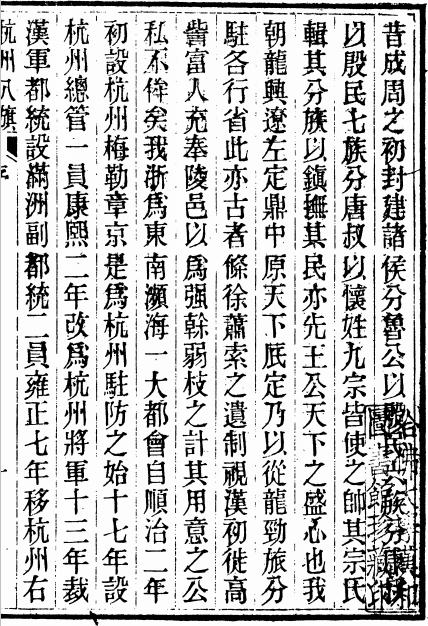 昔成周之初封建諸侯分魯公以殷民六族分康叔
以殷民七族分唐叔以懷姓九宗皆使之帥其宗氏
輯其分族以鎮撫其民亦先王公天下之盛心也我
朝龍興遼左定鼎中原天下厎定乃以從龍勁旅分
駐各行省此亦古者條徐蕭索之遺制視漢初徙高
訾富人充奉陵邑以爲强榦弱枝之計其用意之公
私不侔矣我浙爲東南瀕海一大都會自順治二年
初設杭州梅勒章京是爲杭州駐防之始十七年設
杭州總管一員康熙二年改爲杭州將軍十三年裁
漢軍都統設滿洲副都統二員雍正七年移杭州右
杭州八旗
哈佛大學漢和
圖書館珍藏印